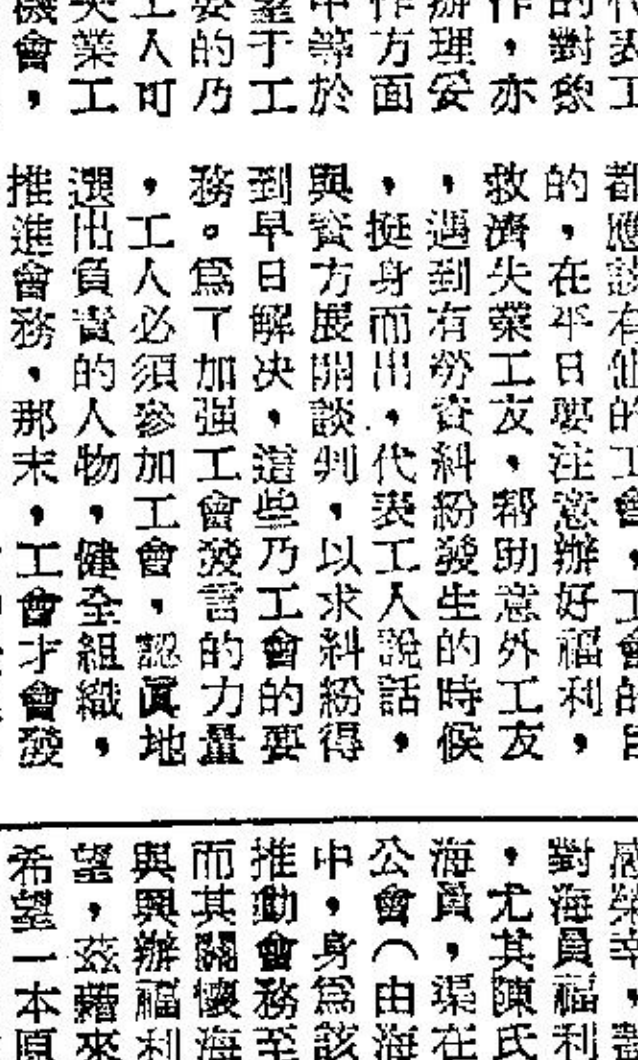 代表工
的對象
作，亦
辦理妥
作方面
中等於
于工
的乃
工人可
失業工
機會，
都應該有他的工會，工會的
的，在平日要注意辦好福利，
救濟失業工友，帮助意外工友
，遇到有勞資糾紛發生的時候
，挺身而出，代表工人說話，
與資方展開談判，以求糾紛得
到早日解决，這些乃工會的要
務。爲了加强工會發言的力量
，工人必須參加工會，認眞地
選出負責的人物，健全組織，
推進會務，那末，工會才會發
感榮幸，
對海員福利
，尤其陳氏
海員，渠在
公會（由海
中，身爲該
推動會務至
而其關懷海
與興辦福利
望，茲藉來
希望一本原